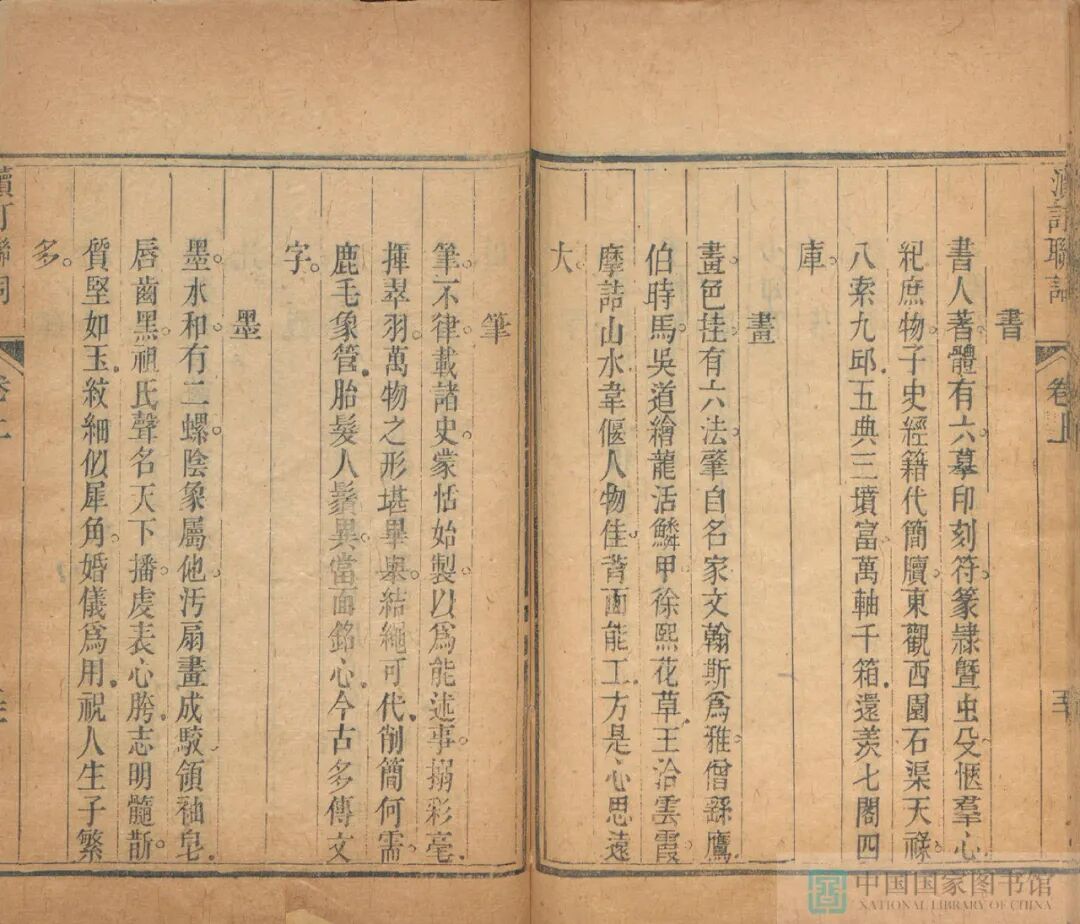 卷上
書
書人著體有六。摹印刻符。篆隸曁虫殳愜羣心
紀庶物。子史經籍代簡牘。東觀西園石渠天祿。
八索九邱。五典三墳富。萬軸千箱。還羨七閣四
庫。
畫
畫。色挂。有六法。肇自名家。文翰斯爲雅。僧繇鷹
伯時馬。吳道繪龍活鱗甲。徐熙花草。王洽雲霞。
摩詰山水韋偃人物佳。背面能工。方是心思遠
大。
筆
筆。不律。載諸史。蒙恬始製。以爲能述事。搦彩毫。
揮翠羽。萬物之形堪畢舉。結繩可代。削簡何需。
鹿毛象管。胎髮人鬚異。當面銘心。今古多傳文
字。
墨
墨。水和。有二螺。陰象屬他。汚扇畫成駁。領袖皂。
唇齒黑。祖氏聲名天下播。虔表心胯。志明髓斮。
質堅如玉。紋細似犀角。婚儀爲用。祝人生子繁
多。
中国国家图书馆
NATIONAL LIBRARY OF CHINA